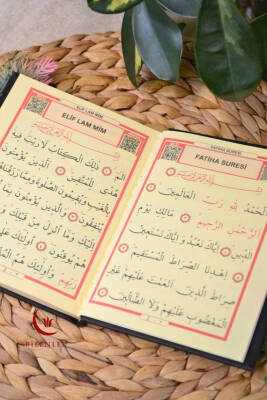 FATİHA SURESİ
FATİHA SURESİ
الْحَمْدُ لِلّٰهِ رَبِّ الْعَالَمِينَ
الرَّحْمٰنِ الرَّحِيمِ مَالِكِ يَوْمِ
الدِّينِ اِيَّاكَ نَعْبُدُ وَاِيَّاكَ نَسْتَعِينُ
اِهْدِنَا الصِّرَاطَ الْمُسْتَقِيمَ
صِرَاطَ الَّذِينَ اَنْعَمْتَ عَلَيْهِمْ غَيْرِ
الْمَغْضُوبِ عَلَيْهِمْ وَلَا الضَّالِّينَ
ELİF LAM MİM
ELİF LAM MİM
الٓمٓ ذٰلِكَ الْكِتَابُ لَا رَيْبَ فِيهِ
هُدًى لِلْمُتَّقِينَ اَلَّذِينَ يُؤْمِنُونَ
بِالْغَيْبِ وَيُقِيمُونَ الصَّلٰوةَ وَمِمَّا رَزَقْنَاهُمْ
يُنْفِقُونَ وَالَّذِينَ يُؤْمِنُونَ بِمَا
اِلَيْكَ وَمَا اُنْزِلَ مِنْ قَبْلِكَ
هُمْ يُوقِنُونَ اُولٰئِكَ عَلٰى
رَبِّهِمْ وَاُولٰئِكَ هُمُ